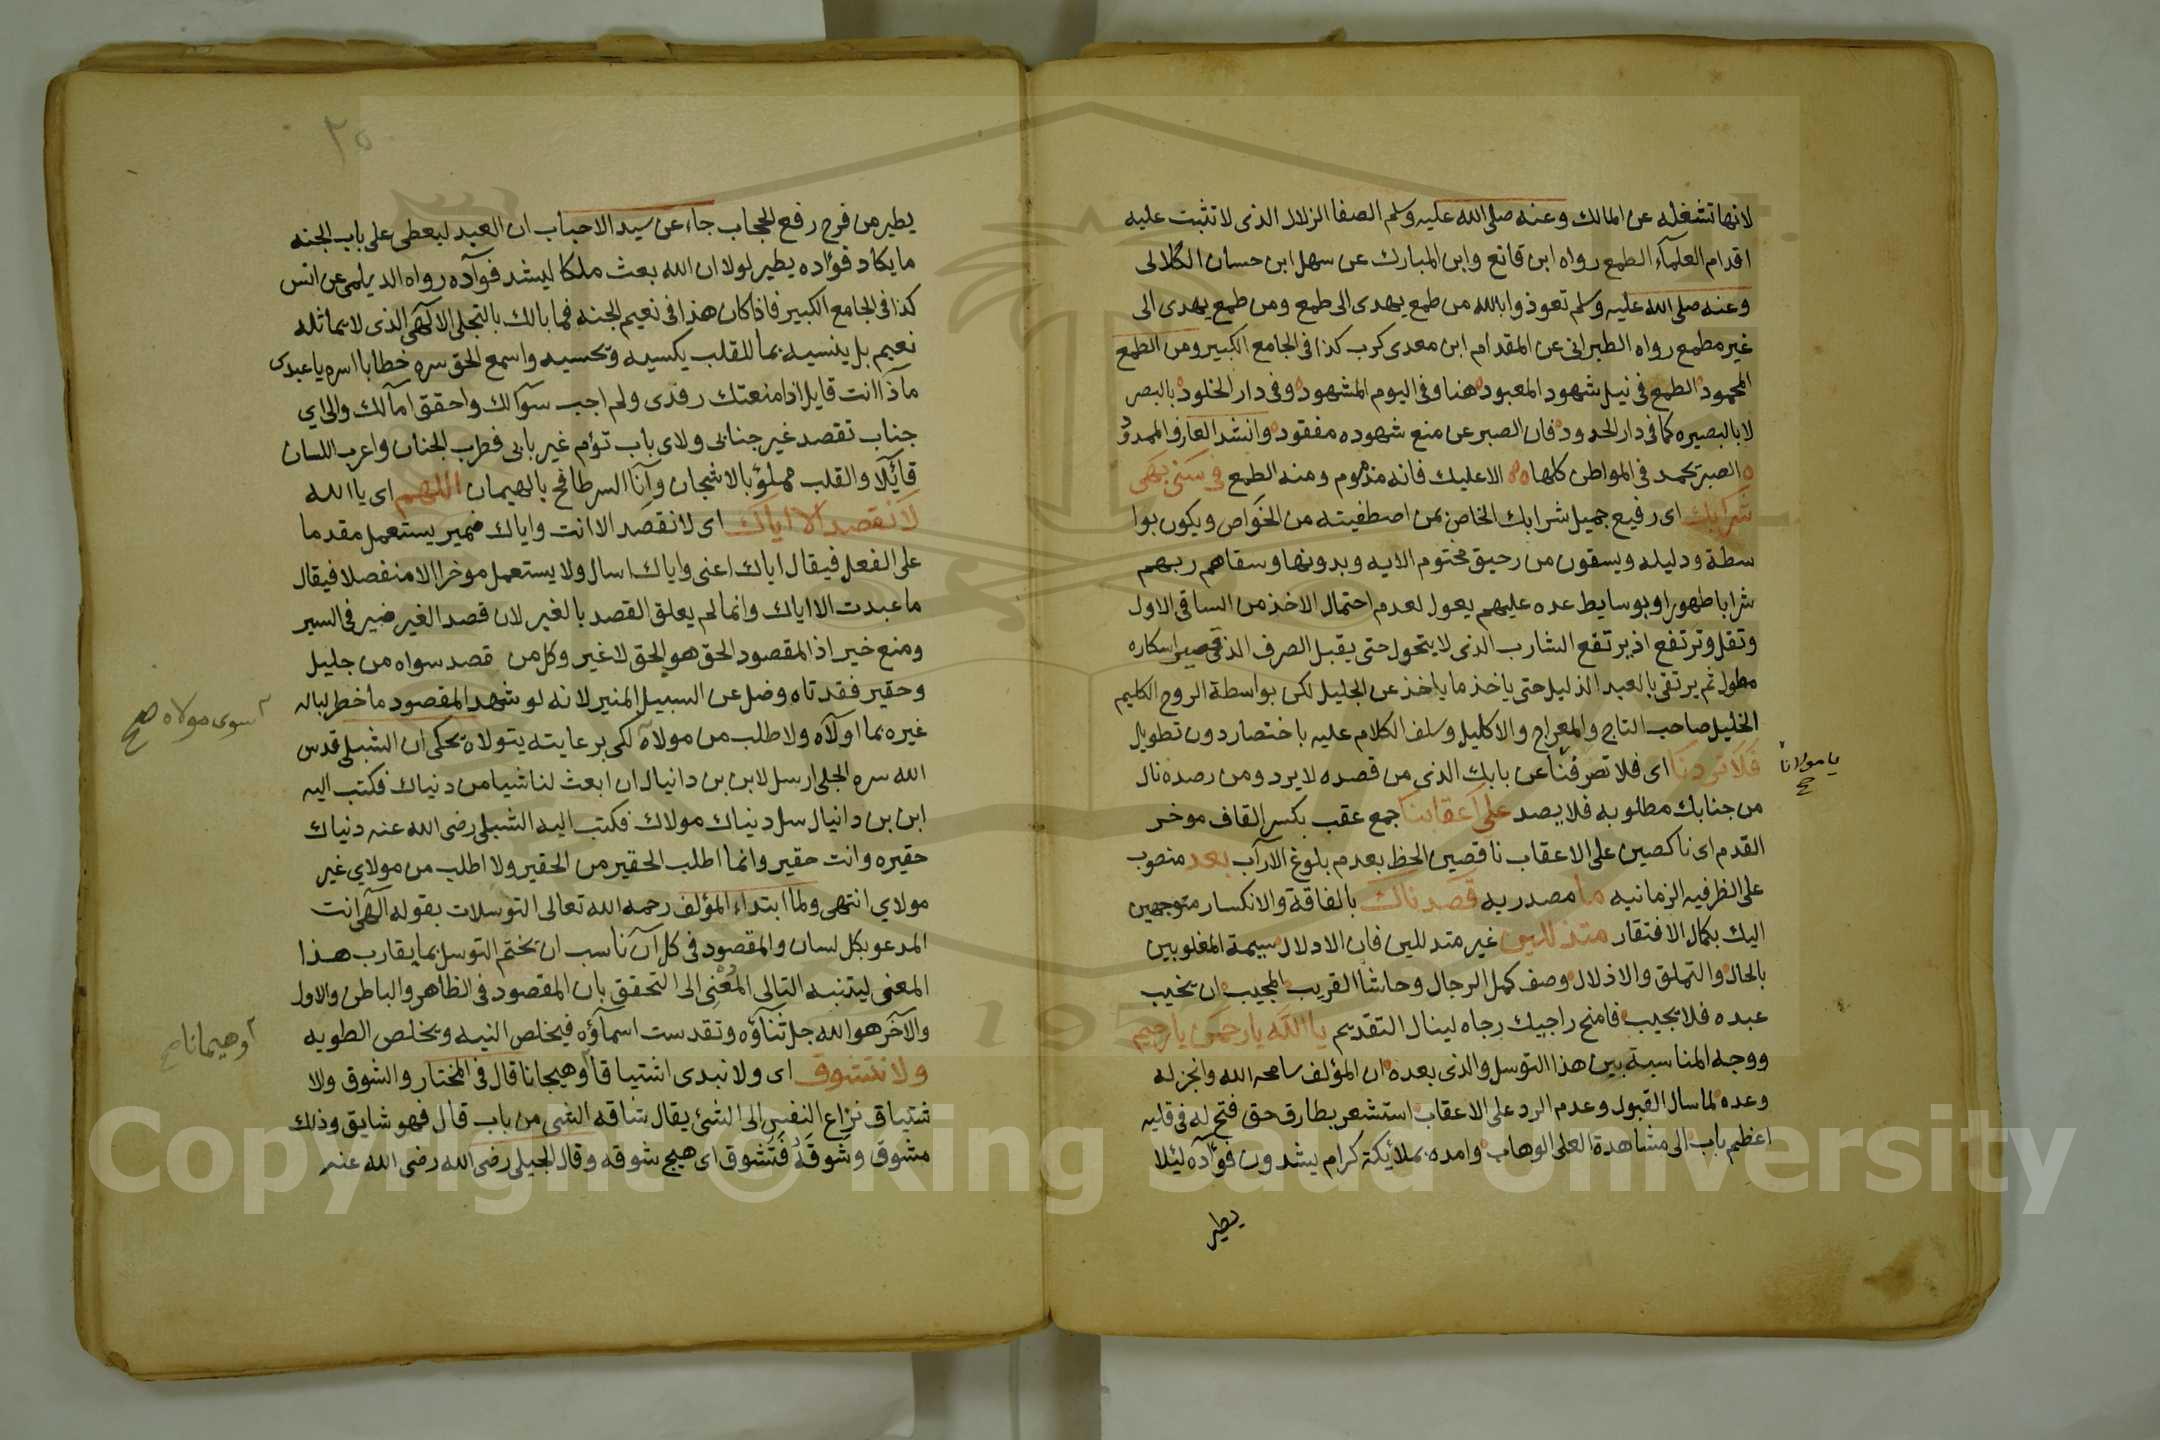 لانها تشغله عن المالك وعنه صلى الله عليه وسلم الصفا الزلال الذى لا تثبت عليه
اقدام العلمآء الطمع رواه ابن قانع وابن المبارك عن سهل ابن حسان الكلالى
وعنه صلى الله عليه وسلم تعوذوا بالله من طمع يهدى الى طمع ومن طمع يهدى الى
غير مطمع رواه الطبرانى عن المقدام ابن معدى كرب كذا فى الجامع الكبير ومن الطمع
المحمود الطمع فى نيل شهود المعبود هنا وفى اليوم المشهود وفى دار الخلود بالبصر
لا بالبصيره كما فى دار الحدود فان الصبر عن منع شهوده مفقود وانشد العارف الممدود
الصبر يحمد فى المواطن كلها ه ه الا عليك فانه مذموم ومنه الطمع فى سنى بهى
شرابك اى رفيع جميل شرابك الخاص بمن اصطفيته من الخواص ويكون بوا
سطة ودليله ويسقون من رحيق مختوم الايه وبدونها وسقاهم ربهم
شرابا طهورا وبوسايط عده عليهم يعول لعدم احتمال الاخذ من الساقى الاول
وتقل وترتفع اذ يرتفع الشارب الذى لا يتحول حتى يقبل الصرف الذى اسكاره
مطول ثم يرتقى بالعبد الذليل حتى ياخذ ما ياخذ عن الجليل لكن بواسطة الروح الكليم
الخليل صاحب التاج والمعراج والاكليل وسلف الكلام عليه باختصار دون تطويل
فلا تردنا اى فلا تصرفنا عن بابك الذى من قصده لا يرد ومن رصده نال
يا مولانا
من جنابك مطلوبه فلا يصد على اعقابنا جمع عقب بكسر القاف موخر
القدم اى ناكصين على الاعقاب ناقصين الحظ بعدم بلوغ الآرآب بعد منصوب
على الظرفيه الزمانيه ما مصدريه قصدناك بالفاقة والانكسار متوجهين
اليك بكمال الافتقار متذللين غير متدللين فان الادلال سيمة المغلوبين
بالحال والتملق والاذلال وصف كمل الرجال وحاشا القريب المجيب ان يخيب
عبده فلا يجيب فامنح راجيك رجاه لينال التقديم يا الله يا رحمن يا رحيم
ووجه المناسبة بين هذا التوسل والذى بعده ان المؤلف سامحه الله وانجز له
وعده لما سال القبول وعدم الرد على الاعقاب استشعر بطارق حق فتح له فى قلبه
اعظم باب الى مشاهدة العلى الوهاب وامده بملائكة كرام يشدون فوآده لئلا
يطير
٢٥
يطير من فرح رفع الحجاب جاء عن سيد الاحباب ان العبد ليعطى على باب الجنه
ما يكاد فؤاده يطير لولا ان الله بعث ملكا ليشد فوآده رواه الديلمى عن انس
كذا فى الجامع الكبير فاذا كان هذا فى نعيم الجنه فما بالك بالتجلى الالهى الذى لا يماثله
نعيم بل ينسيه بما للقلب يكسيه وتحسيه واسمع الحق سره خطابا اسره يا عبدى
ماذا انت قايل اذا منعتك رفدى ولم اجب سؤالك واحقق امآلك والى اي
جناب تقصد غير جنابى ولاى باب تؤم غير بابى فطرب الجنان واعرب اللسان
قائلا والقلب مملؤ بالاشجان وآنا السر طافح بالهيمان اللهم اى يا الله
لا نقصد الا اياك اى لا نقصد الا انت واياك ضمير يستعمل مقدما
على الفعل فيقال اياك اعنى واياك اسال ولا يستعمل موخرا الا منفصلا فيقال
ما عبدت الا اياك وانما لم يعلق القصد بالغير لان قصد الغير ضير فى السير
ومنع خير اذ المقصود الحق هو الحق لا غير وكل من قصد سواه من جليل
وحقير فقد تاه وضل عن السبيل المنير لانه لو شهد المقصود ما خطر لباله
سوى مولاه صح
غيره بما اولاه ولا طلب من مولاه لكى برعايته يتولاه يحكى ان الشبلى قدس
الله سره الجلى ارسل لابن بن دانيال ان ابعث لنا شيا من دنياك فكتب اليه
ابن بن دانيال سل دنياك مولاك فكتب اليه الشبلى رضى الله عنه دنياك
حقيره وانت حقير وانما اطلب الحقير من الحقير ولا اطلب من مولاي غير
مولاي انتهى ولما ابتداء المؤلف رحمه الله تعالى التوسلات بقوله الهى انت
المدعو بكل لسان والمقصود فى كل آن ناسب ان يختم التوسل بما يقارب هذا
المعنى ليتنبه التالى المعنى الى التحقق بان المقصود فى الظاهر والباطن والاول
والآخر هو الله جل ثناؤه وتقدست اسماؤه فيخلص النيه ويخلص الطويه
ولا نتشوق اى ولا نبدى اشتياقا وهيجانا قال فى المختار والشوق والا
وهيمانا صح
شتياق نزاع النفس الى الشئ يقال شاقه الشى من باب قال فهو شايق وذلك
مشوق وشوقه فتشوق اى هيج شوقه وقال الجيلى رضى الله رضى الله عنه
Copyright © King Saud University
195